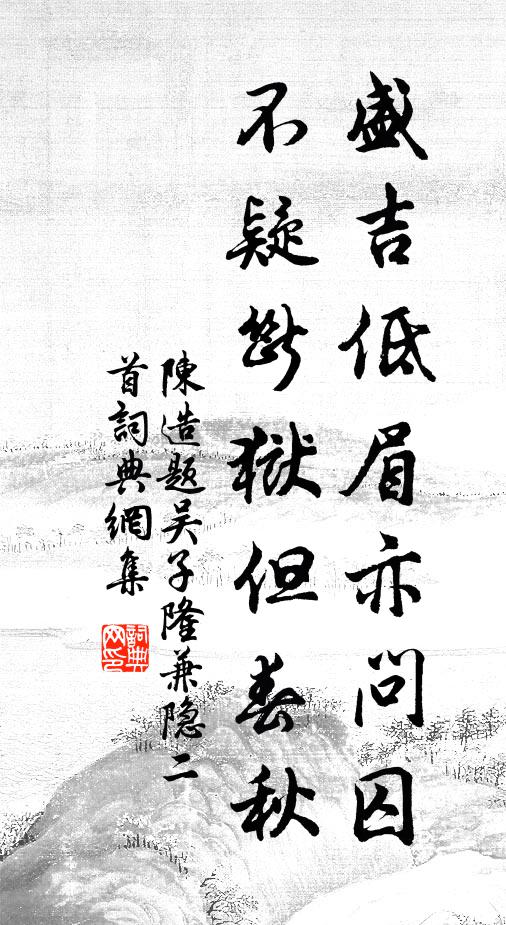 盛吉低眉亦問囚
不疑斷獄但春秋
陳造題吳子隆兼隐二
首詞典網集
詞典
网印